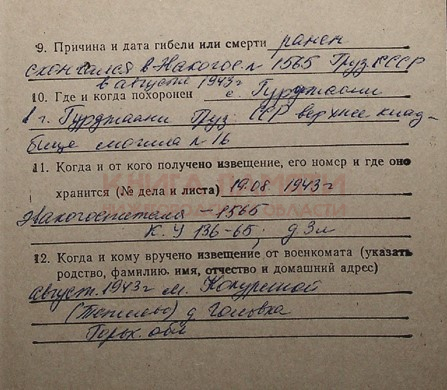 9. Причина и дата гибели или смерти ранен
скончался в Эвакогос. № 1565 Груз. СССР
в августе 1943 г
10. Где и когда похоронен с. Гурджаани
г. Гурджаани Груз. ССР верхнее клад-
бище могила № 16
11. Когда и от кого получено извещение, его номер и где оно
хранится (№ дела и листа) 19.08 1943 г
Эвакогоспиталя — 1565
К. У 136-65. д 3л
12. Когда и кому вручено извещение от военкомата (указать
родство, фамилию, имя, отчество и домашний адрес)
август. 1943 г м.
д Головха
Горьк. обл
КНИГА ПАМЯТИ
НИЖЕГОРОДСКОЙ ОБЛАСТИ